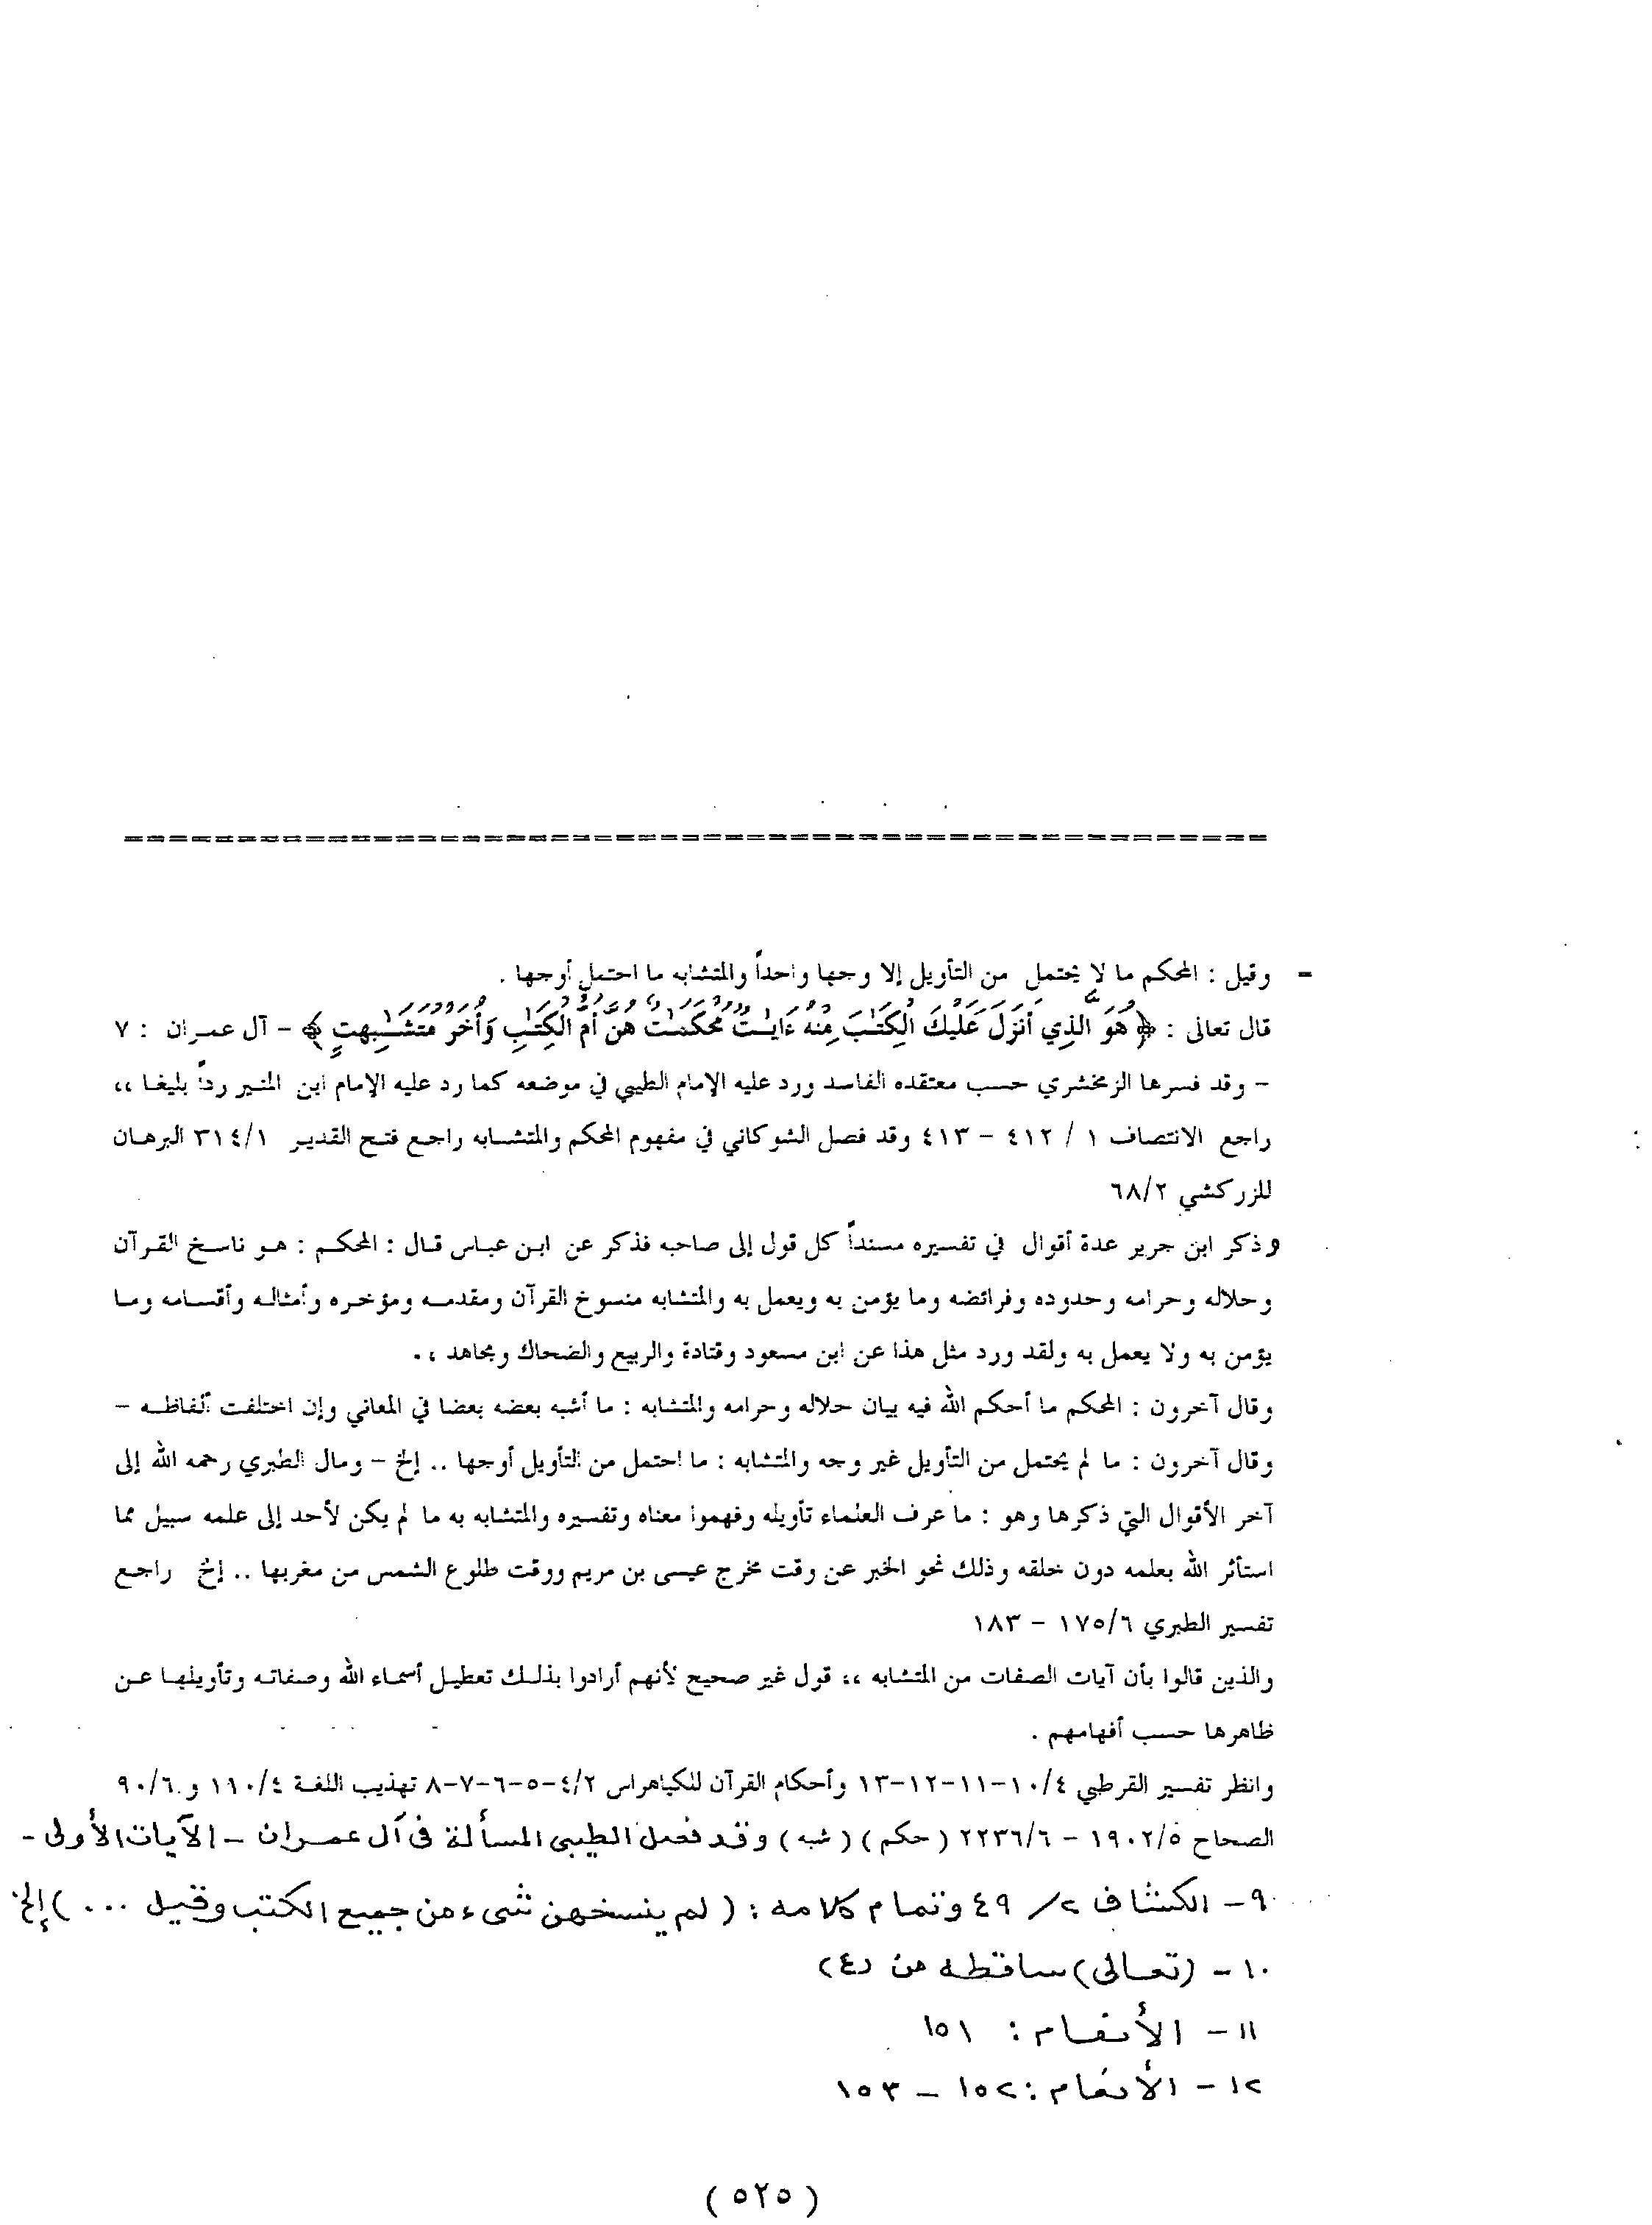 - وقيل : المحكم ما لا يحتمل من التأويل إلا وجها واحداً والمتشابه ما احتمل أوجها .
قال تعالى : ﴿ هُوَ الَّذِي أَنزَلَ عَلَيْكَ الْكِتَٰبَ مِنْهُ ءَايَٰتٌ مُّحْكَمَٰتٌ هُنَّ أُمُّ الْكِتَٰبِ وَأُخَرُ مُتَشَٰبِهَٰتٍ ﴾ - آل عمران : ٧
- وقد فسرها الزمخشري حسب معتقده الفاسد ورد عليه الإمام الطيبي في موضعه كما رد عليه الإمام ابن المنير رداً بليغا ،،
راجع الانتصاف ١ / ٤١٢ - ٤١٣ وقد فصل الشوكاني في مفهوم المحكم والمتشابه راجع فتح القدير ٣١٤/١ البرهان
للزركشي ٦٨/٢
وذكر ابن جرير عدة أقوال في تفسيره مسنداً كل قول إلى صاحبه فذكر عن ابن عباس قال : المحكم : هو ناسخ القرآن
وحلاله وحرامه وحدوده وفرائضه وما يؤمن به ويعمل به والمتشابه منسوخ القرآن ومقدمه ومؤخره وأمثاله وأقسامه وما
يؤمن به ولا يعمل به ولقد ورد مثل هذا عن ابن مسعود وقتادة والربيع والضحاك ومجاهد ، .
وقال آخرون : المحكم ما أحكم الله فيه بيان حلاله وحرامه والمتشابه : ما أشبه بعضه بعضا في المعاني وإن اختلفت ألفاظه -
وقال آخرون : ما لم يحتمل من التأويل غير وجه والمتشابه : ما احتمل من التأويل أوجها .. إلخ - ومال الطبري رحمه الله إلى
آخر الأقوال التي ذكرها وهو : ما عرف العلماء تأويله وفهموا معناه وتفسيره والمتشابه به ما لم يكن لأحد إلى علمه سبيل مما
استأثر الله بعلمه دون خلقه وذلك نحو الخبر عن وقت مخرج عيسى بن مريم ووقت طلوع الشمس من مغربها .. إلخ راجع
تفسير الطبري ١٧٥/٦ - ١٨٣
والذين قالوا بأن آيات الصفات من المتشابه ،، قول غير صحيح لأنهم أرادوا بذلك تعطيل أسماء الله وصفاته وتأويلها عن
ظاهرها حسب أفهامهم .
وانظر تفسير القرطبي ١٠/٤-١١-١٢-١٣ وأحكام القرآن للكياهراس ٤/٢-٥-٦-٧-٨ تهذيب اللغة ١١٠/٤ و ٩٠/٦
الصحاح ١٩٠٢/٥ - ٢٢٣٦/٦ ( حكم ) ( شبه ) وقد فصل الطيبي المسألة في آل عمران - الآيات الأولى -
٩- الكشاف ٢/ ٤٩ وتمام كلامه : ( لم ينسخهن شيء من جميع الكتب وقيل ... ) إلخ
١٠- (تعالى) ساقطة من (٤)
١١- الأنعام : ١٥١
١٢- الأنعام : ١٥٢ - ١٥٣
( ٥٢٥ )